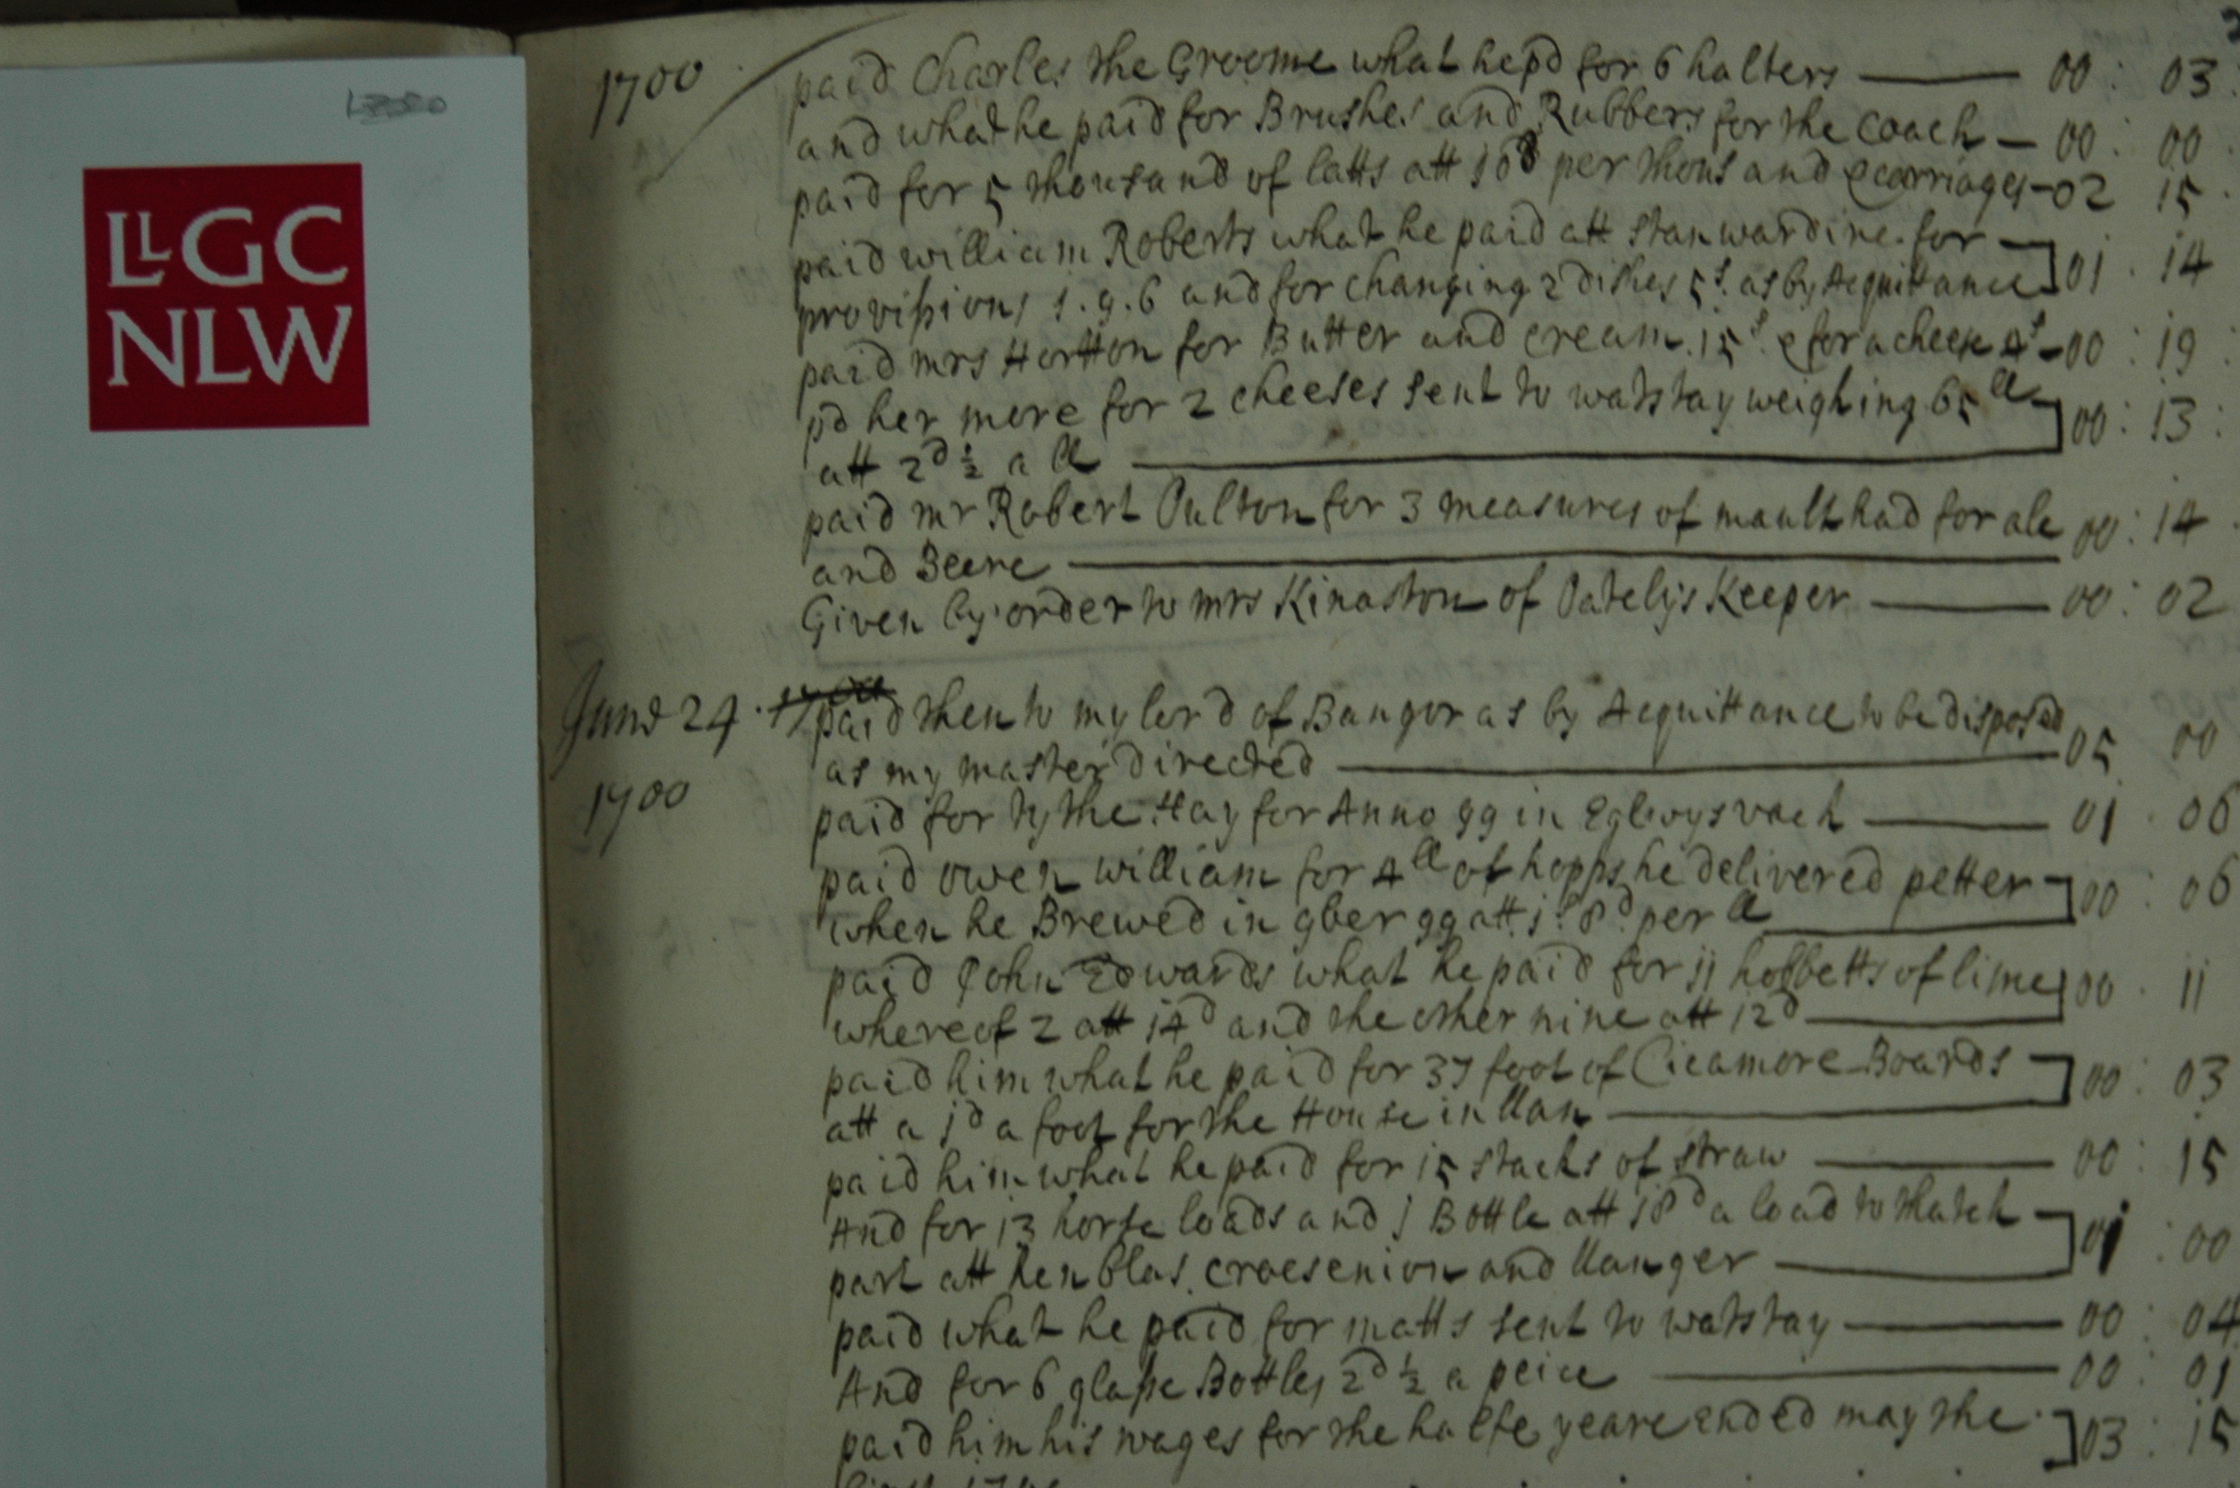 LLGC
NLW
1700
paid Charles the Groome what he pd for 6 halters — 00 : 03
and what he paid for Brushes and Rubbers for the Coach — 00 : 00
paid for 5 thousand of latts att per thousand carriages — 02 15
paid william Roberts what he paid att Stanwardine for
provissions 1 . 9 . 6 and for changing 2 dishes 5s. as by Acquittance 01 . 14
paid mrs Hortton for Butter and cream 15s. & for a cheese 4s — 00 : 19
pd her more for 2 cheeses sent to watstay weighing 65 ll
att 2d ½ a ll — 00 : 13 :
paid mr Robert Pulton for 3 measures of mault had for ale
and Beere — 00 : 14
Given by order to mrs Kinaston of Oatelys Keeper — 00 : 02
June 24 . 1700
1700
paid then to my lord of Bangor as by Acquittance to be disposed
as my master directed — 05 00
paid for tythe Hay for Anno 99 in Eglwysvach — 01 . 06
paid owen william for 4 ll of hopps he delivered petter
when he Brewed in 9ber 99 att 1s. 8d. per ll — 00 : 06
paid John Edwards what he paid for 11 hobbetts of lime
whereof 2 att 14d and the other nine att 12d — 00 . 11
paid him what he paid for 37 foot of Cicamore Boards
att a 1d a foot for the House in llan — 00 : 03
paid him what he paid for 15 stacks of straw — 00 : 15
And for 13 horse loads and 1 Bottle att 18d a load to thatch
part att henblas, croesenion and llanger — 01 : 00
paid what he paid for matts sent to watstay — 00 : 04
And for 6 glasse Bottles 2d ½ a peice — 00 : 01
paid him his wages for the halfe yeare ended may the 03 : 15